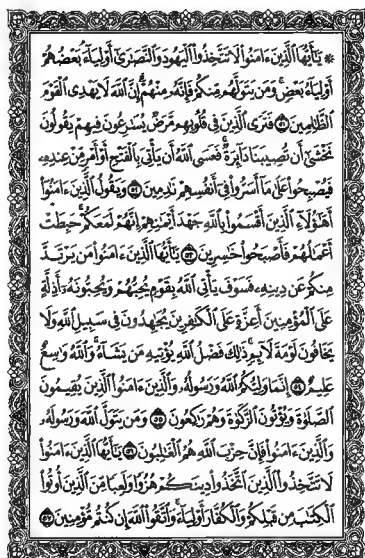 ۞ يَٰٓأَيُّهَا ٱلَّذِينَ ءَامَنُوا۟ لَا تَتَّخِذُوا۟ ٱلْيَهُودَ وَٱلنَّصَٰرَىٰٓ أَوْلِيَآءَ بَعْضُهُمْ
أَوْلِيَآءُ بَعْضٍ ۚ وَمَن يَتَوَلَّهُم مِّنكُمْ فَإِنَّهُۥ مِنْهُمْ ۗ إِنَّ ٱللَّهَ لَا يَهْدِى ٱلْقَوْمَ
ٱلظَّٰلِمِينَ ٥١ فَتَرَى ٱلَّذِينَ فِى قُلُوبِهِم مَّرَضٌ يُسَٰرِعُونَ فِيهِمْ يَقُولُونَ
نَخْشَىٰٓ أَن تُصِيبَنَا دَآئِرَةٌ ۚ فَعَسَى ٱللَّهُ أَن يَأْتِىَ بِٱلْفَتْحِ أَوْ أَمْرٍ مِّنْ عِندِهِۦ
فَيُصْبِحُوا۟ عَلَىٰ مَآ أَسَرُّوا۟ فِىٓ أَنفُسِهِمْ نَٰدِمِينَ ٥٢ وَيَقُولُ ٱلَّذِينَ ءَامَنُوٓا۟
أَهَٰٓؤُلَآءِ ٱلَّذِينَ أَقْسَمُوا۟ بِٱللَّهِ جَهْدَ أَيْمَٰنِهِمْ ۙ إِنَّهُمْ لَمَعَكُمْ ۚ حَبِطَتْ
أَعْمَٰلُهُمْ فَأَصْبَحُوا۟ خَٰسِرِينَ ٥٣ يَٰٓأَيُّهَا ٱلَّذِينَ ءَامَنُوا۟ مَن يَرْتَدَّ
مِنكُمْ عَن دِينِهِۦ فَسَوْفَ يَأْتِى ٱللَّهُ بِقَوْمٍ يُحِبُّهُمْ وَيُحِبُّونَهُۥٓ أَذِلَّةٍ
عَلَى ٱلْمُؤْمِنِينَ أَعِزَّةٍ عَلَى ٱلْكَٰفِرِينَ يُجَٰهِدُونَ فِى سَبِيلِ ٱللَّهِ وَلَا
يَخَافُونَ لَوْمَةَ لَآئِمٍ ۚ ذَٰلِكَ فَضْلُ ٱللَّهِ يُؤْتِيهِ مَن يَشَآءُ ۚ وَٱللَّهُ وَٰسِعٌ
عَلِيمٌ ٥٤ إِنَّمَا وَلِيُّكُمُ ٱللَّهُ وَرَسُولُهُۥ وَٱلَّذِينَ ءَامَنُوا۟ ٱلَّذِينَ يُقِيمُونَ
ٱلصَّلَوٰةَ وَيُؤْتُونَ ٱلزَّكَوٰةَ وَهُمْ رَٰكِعُونَ ٥٥ وَمَن يَتَوَلَّ ٱللَّهَ وَرَسُولَهُۥ
وَٱلَّذِينَ ءَامَنُوا۟ فَإِنَّ حِزْبَ ٱللَّهِ هُمُ ٱلْغَٰلِبُونَ ٥٦ يَٰٓأَيُّهَا ٱلَّذِينَ ءَامَنُوا۟
لَا تَتَّخِذُوا۟ ٱلَّذِينَ ٱتَّخَذُوا۟ دِينَكُمْ هُزُوًا وَلَعِبًا مِّنَ ٱلَّذِينَ أُوتُوا۟
ٱلْكِتَٰبَ مِن قَبْلِكُمْ وَٱلْكُفَّارَ أَوْلِيَآءَ ۚ وَٱتَّقُوا۟ ٱللَّهَ إِن كُنتُم مُّؤْمِنِينَ ٥٧